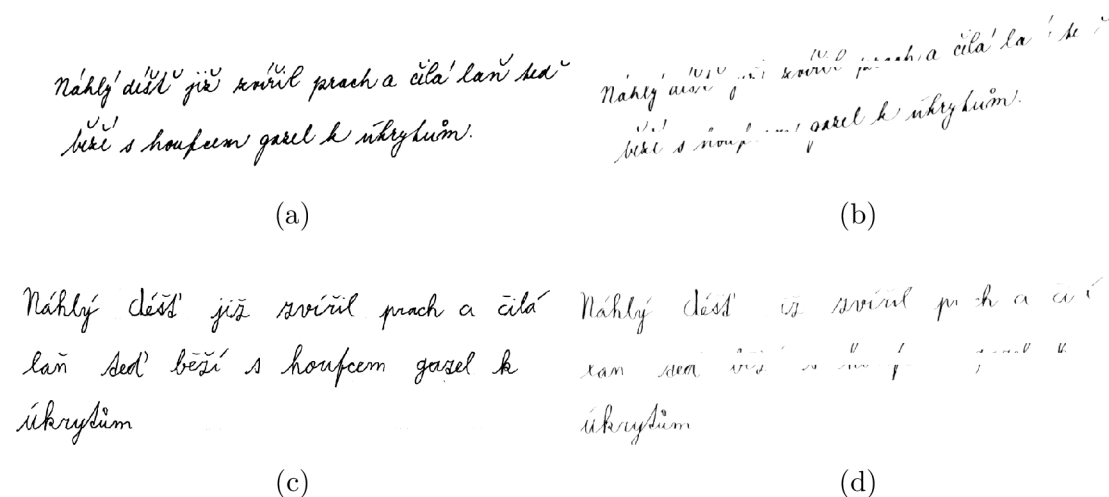 Náhlý déšť již zvířil prach a čilá laň teď
běží s houfcem gazel k úkrytům.
(a)
Náhlý déšť zvířil a čilá
běží s gazel k úkrytům.
(b)
Náhlý déšť již zvířil prach a čilá
laň teď běží s houfcem gazel k
úkrytům
(c)
Náhlý déšť zvířil a
s k
úkrytům
(d)